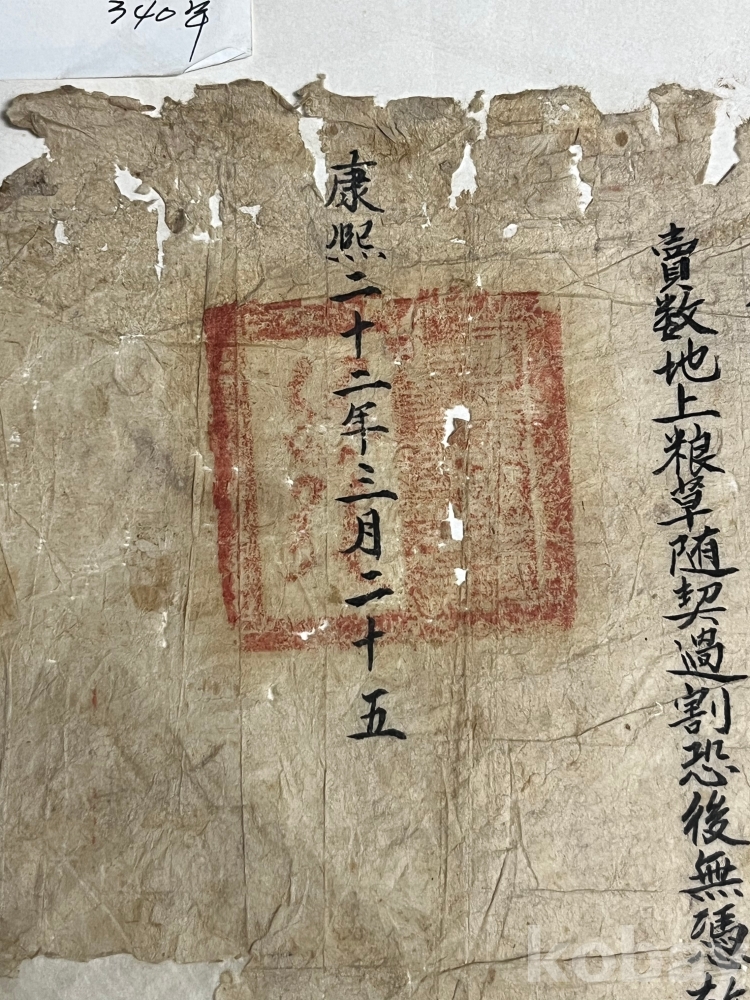 340年
賣数地上粮草随契過割恐後無憑故
康熙二十二年三月二十五